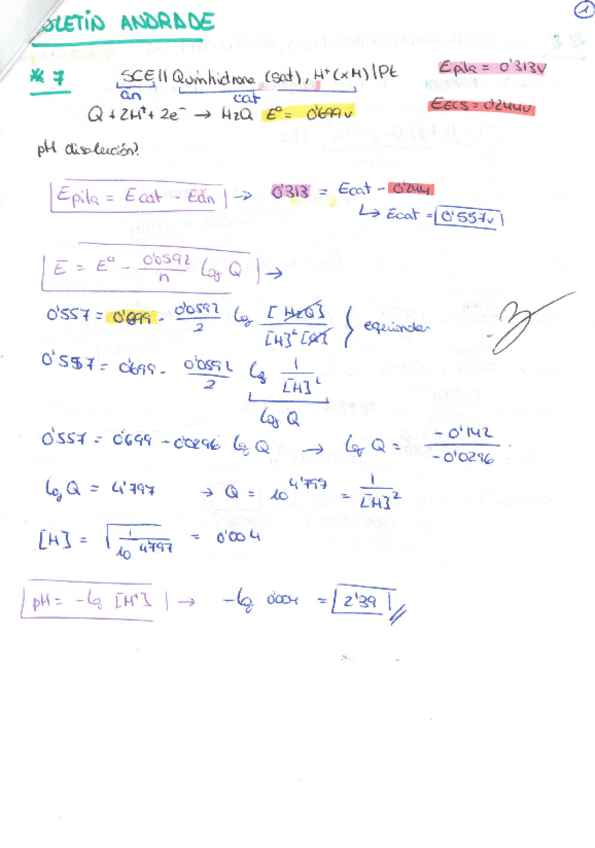 1
OLETIN ANDRADE
* 7 SCE || Quinhidrona (Sat), H⁺ (xM) | Pt Epila = 0'313V
an cat
Q + 2H⁺ + 2e⁻ → H₂Q E° = 0'699v EECS = 0'244v
pH disolución?
Epila = Ecat - Ean → 0'313 = Ecat - 0'244
↳ Ecat = 0'557v
E = E° - 0'0592/n log Q →
0'557 = 0'699 - 0'0592/2 log [H₂Q]/[H]²[Q] } equimolar
0'557 = 0'699 - 0'0592/2 log 1/[H]²
log Q
0'557 = 0'699 - 0'0296 log Q → log Q = -0'142/-0'0296
log Q = 4'797 → Q = 10^4'797 = 1/[H]²
[H] = √1/10^4'797 = 0'004
pH = -log [H⁺] → -log 0'004 = 2'39